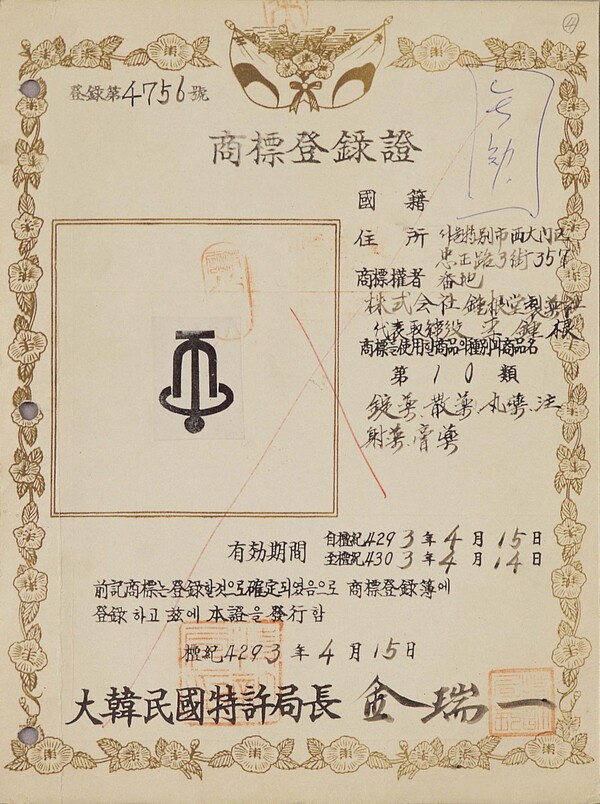 登錄第4756號
商標登錄證
國籍
住所 서울特別市西大門區
忠正路3街357
番地
商標權者
株式会社 鍾根堂製薬社
代表取締役 李鍾根
商標를使用할商品의種別과商品名
第10類
錠薬、散薬、丸薬、注
射薬、膏薬
有効期間 自檀紀4293年4月15日
至檀紀4303年4月14日
前記商標는登錄할것으로確定되였음으로 商標登錄簿에
登錄하고玆에本證을發行함
檀紀4293年4月15日
大韓民國特許局長 金瑞一